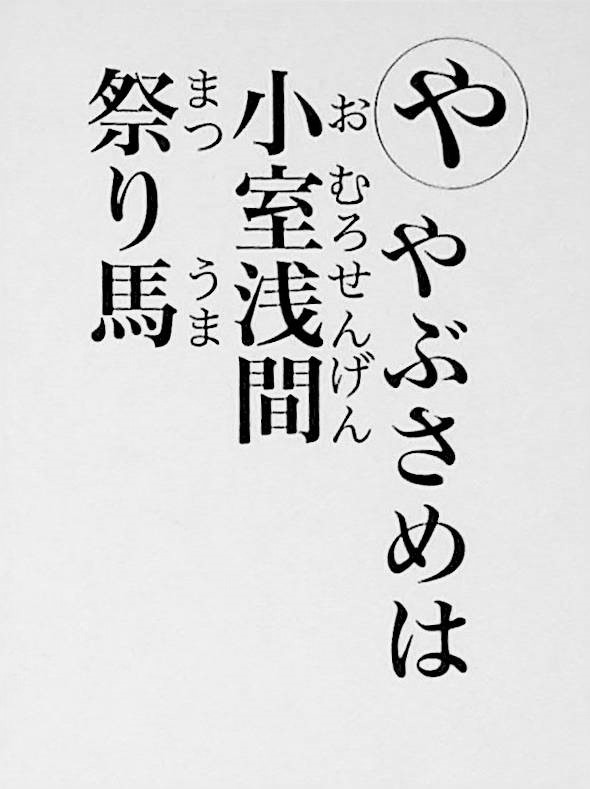 や
やぶさめは
小室浅間
おむろせんげん
祭り馬
まつ うま